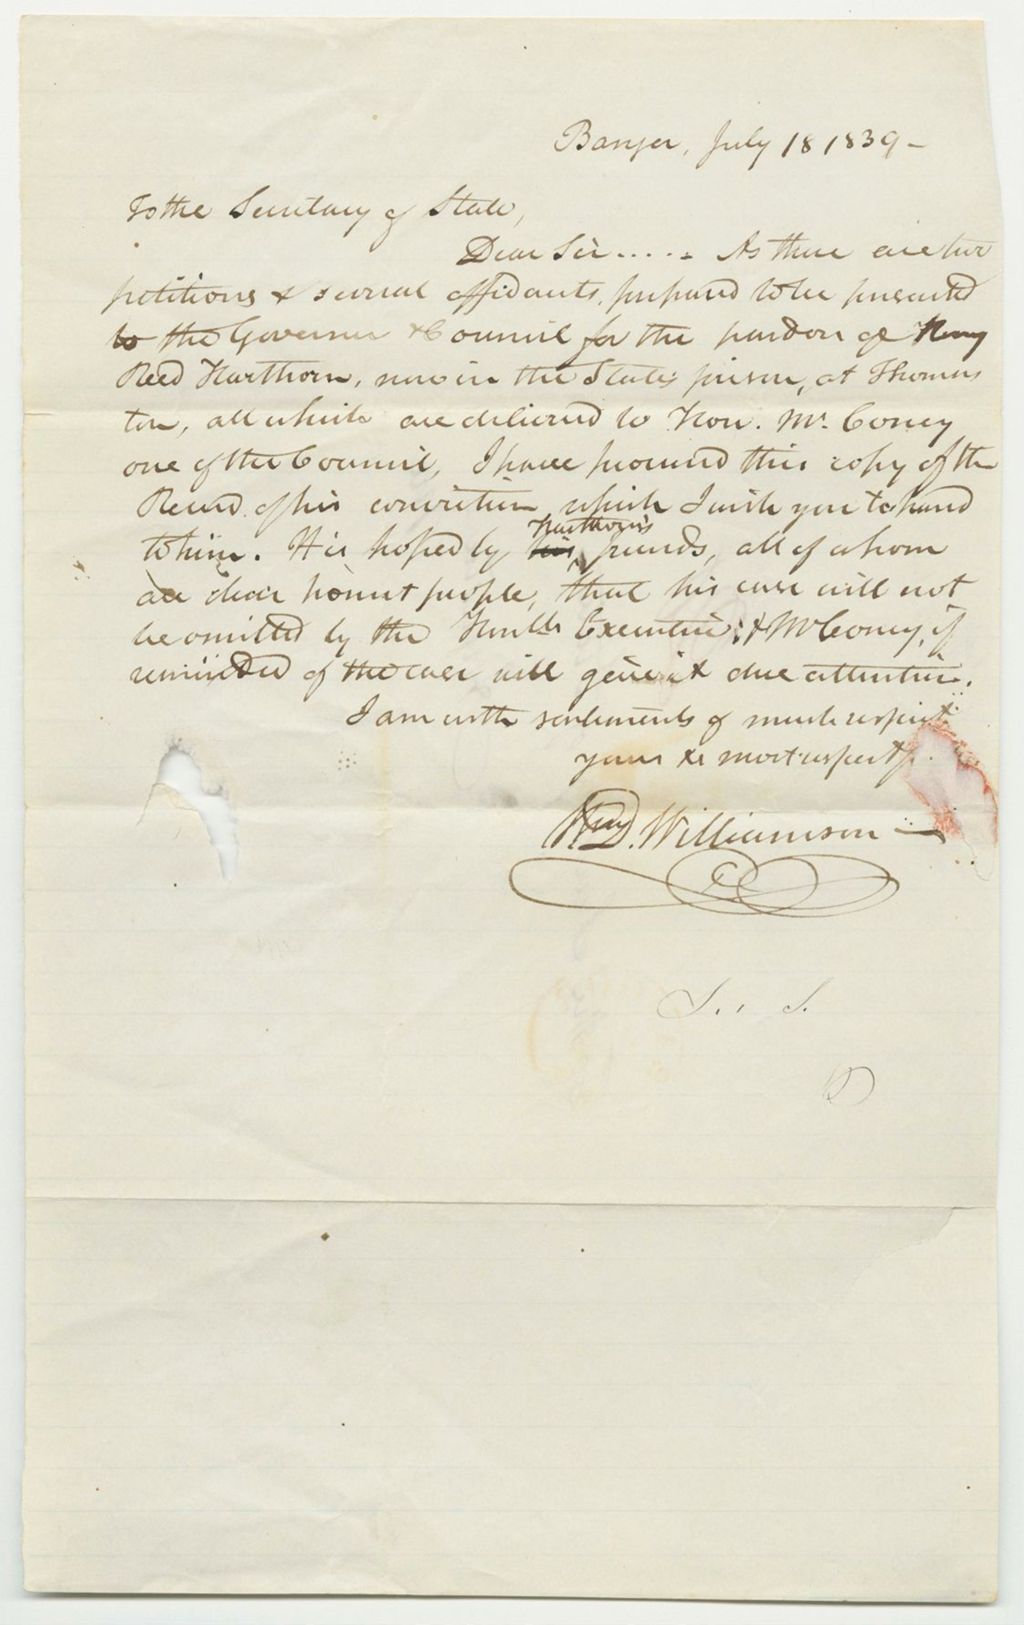 Bangor, July 18 1839 -
To the Secretary of State,
Dear Sir..... As there are two
petitions & several affidavits, prepared to be presented
to the Governor & Council for the pardon of
Reed Harthorn, now in the State's prison, at Thomas
ton, all which are delivered to Hon. Mr. Coney
one of the Council, I have procured this copy of the
Record of his conviction which I wish you to hand
to him. It is hoped by Harthorn's friends, all of whom
are clear honest people, that his case will not
be omitted by the Honble Executive; & Mr Coney, if
reminded of the case will give it due attention.
I am with sentiments of much respect
yours &c most respectf
Wm D. Williamson
S. S.